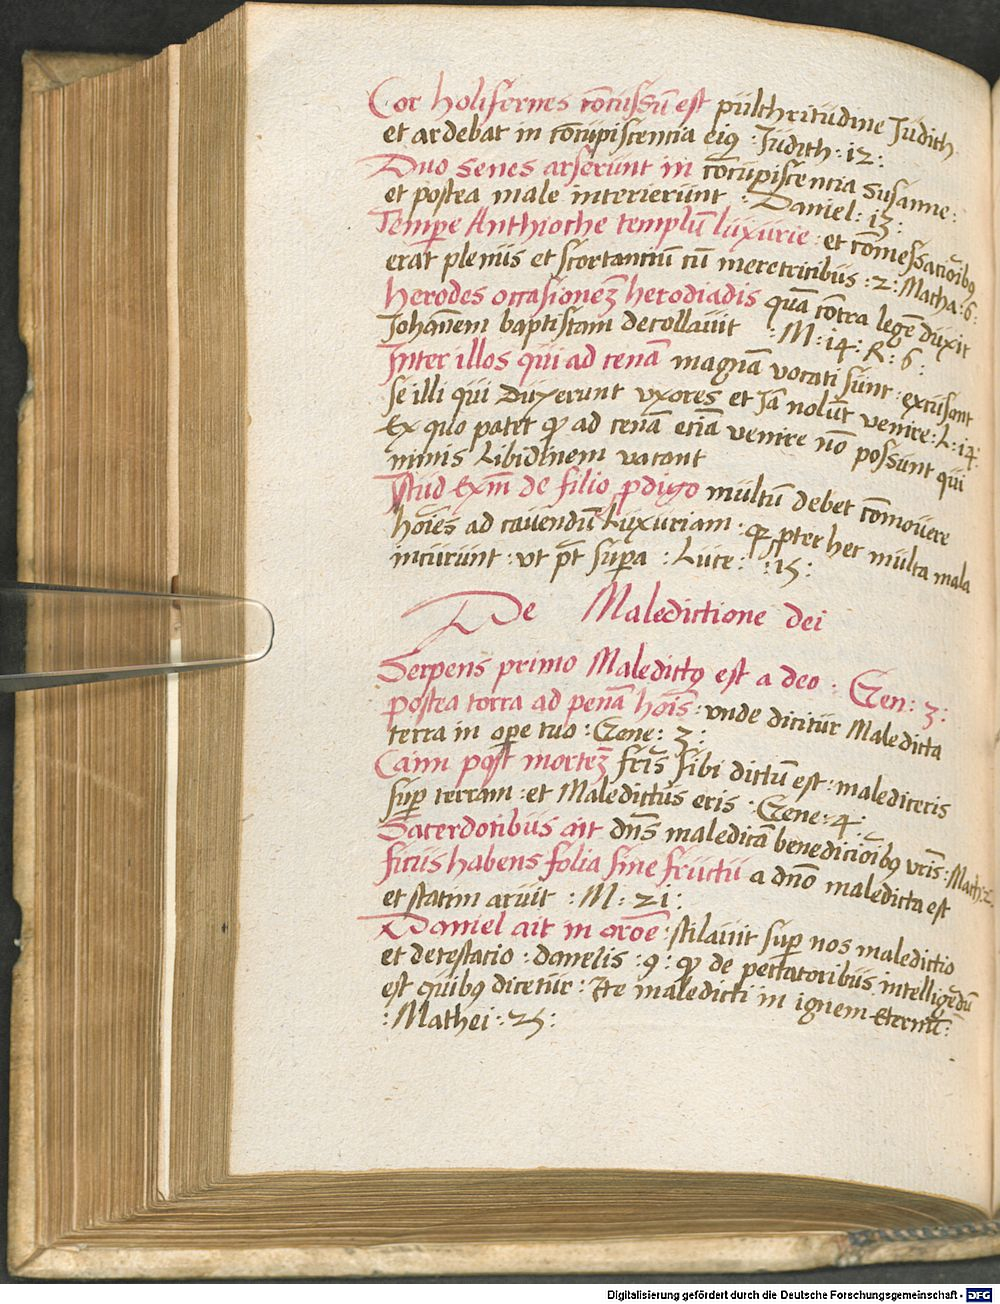 Cor holifernes cōcussū est pulchritudine Judith
et ardebat in cōcupiscencia eiꝰ : Judith : 12 :
Duo senes arserunt in cōcupiscencia susanne :
et postea male interierunt : Daniel : 13 :
Tempe Anthioche templū luxurie : et cōmessacioībꝰ
erat plenus et scortanciū cū meretricibus : 2 : Macha : 6 :
herodes occasioneꝫ herodiadis quā cōtra legē duxit
Johannem baptistam decollauit : M : 14 : R : 6 :
Inter illos qui ad cenā magnā vocati sunt : excusant
se illi qui Duxerunt vxores et Jā nolūt venire : L : 14 :
Ex quo patet ꝙ ad cenā eciā venire nō possunt qui
nimis Libidinem vacant
Istud Exm̄ de filio ꝓdigo multū debet cōmouere
hoīes ad cauendū Luxuriam : qꝛ ꝓpter hec multa mala
incurunt : vt pt̄ supra : Luce : 15 :
De Maledictione dei
Serpens primo Maledictꝰ est a deo : Gen : 3 :
postea terra ad penā hoīs : vnde dicitur Maledicta
terra in ope tuo : Gene : 3 :
Caim post morteꝫ fr̄is sibi dictū est : malediceris
sup terram : et Maledictus eris : Gene : 4 :
Sacerdotibus ait dn̄s maledicā benedicioībꝰ vr̄is : Mach : 2 :
ficus habens folia sine fructu a dn̄o maledicta est
et statim aruit : M : 21 :
Daniel ait in oroē : stilauit sup nos maledictio
et detestacio : danelis : 9 : ꝙ de peccatoribus intelligēdū
est quibꝰ dicetur : Ite maledicti in ignem Eternū :
: Mathei : 25 :
Digitalisierung gefördert durch die Deutsche Forschungsgemeinschaft - DFG